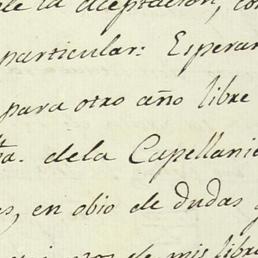 de la aceptacion, co
particular: Esperan
para otro año libre
ta. dela Capellanie
s, en obio de dudas
de mis libre